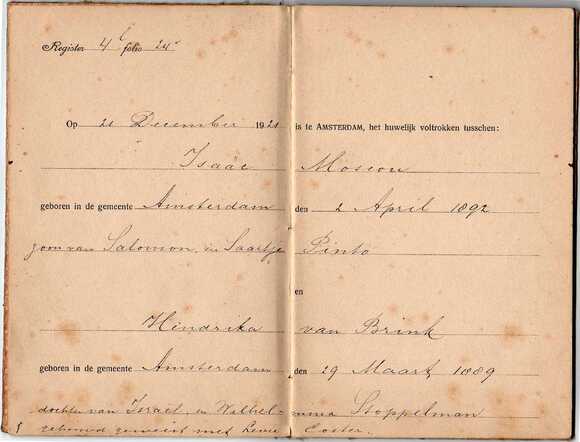 Register 4 folio 24
Op 21 December 1921 is te AMSTERDAM, het huwelijk voltrokken tusschen:
Isaac Moscou
geboren in de gemeente Amsterdam den 2 April 1892
zoon van Salomon, en Saartje Pinto
en
Hendrika van Brink
geboren in de gemeente Amsterdam den 29 Maart 1889
dochter van Israel, en Stoppelman
gehuwd geweest met Coster.